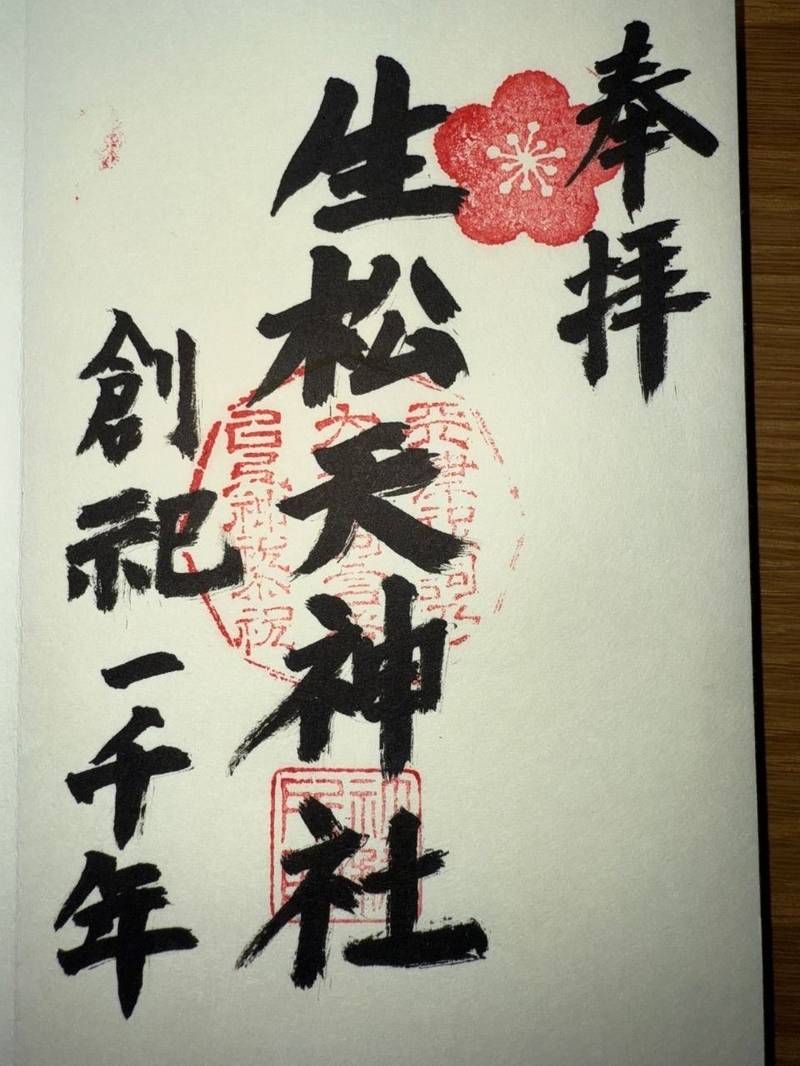 奉拝
生松天神社
創祀一千年